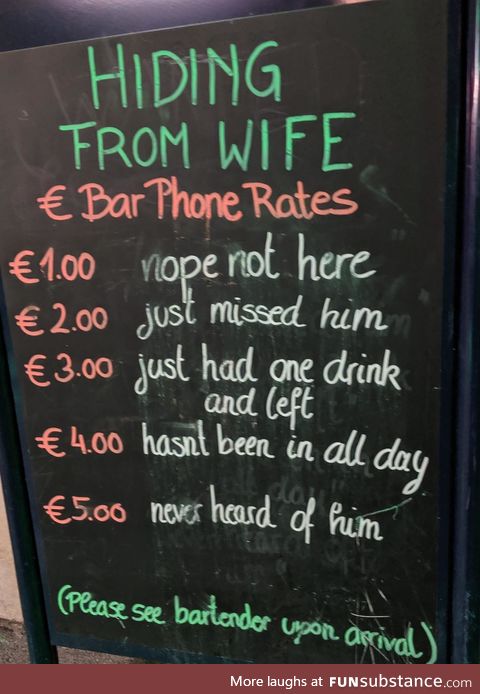 HIDING
FROM WIFE
€ Bar Phone Rates
€1.00 nope not here
€2.00 just missed him
€3.00 just had one drink
and left
€4.00 hasnt been in all day
€5.00 never heard of him
(please see bartender upon arrival)
More laughs at FUNsubstance.com